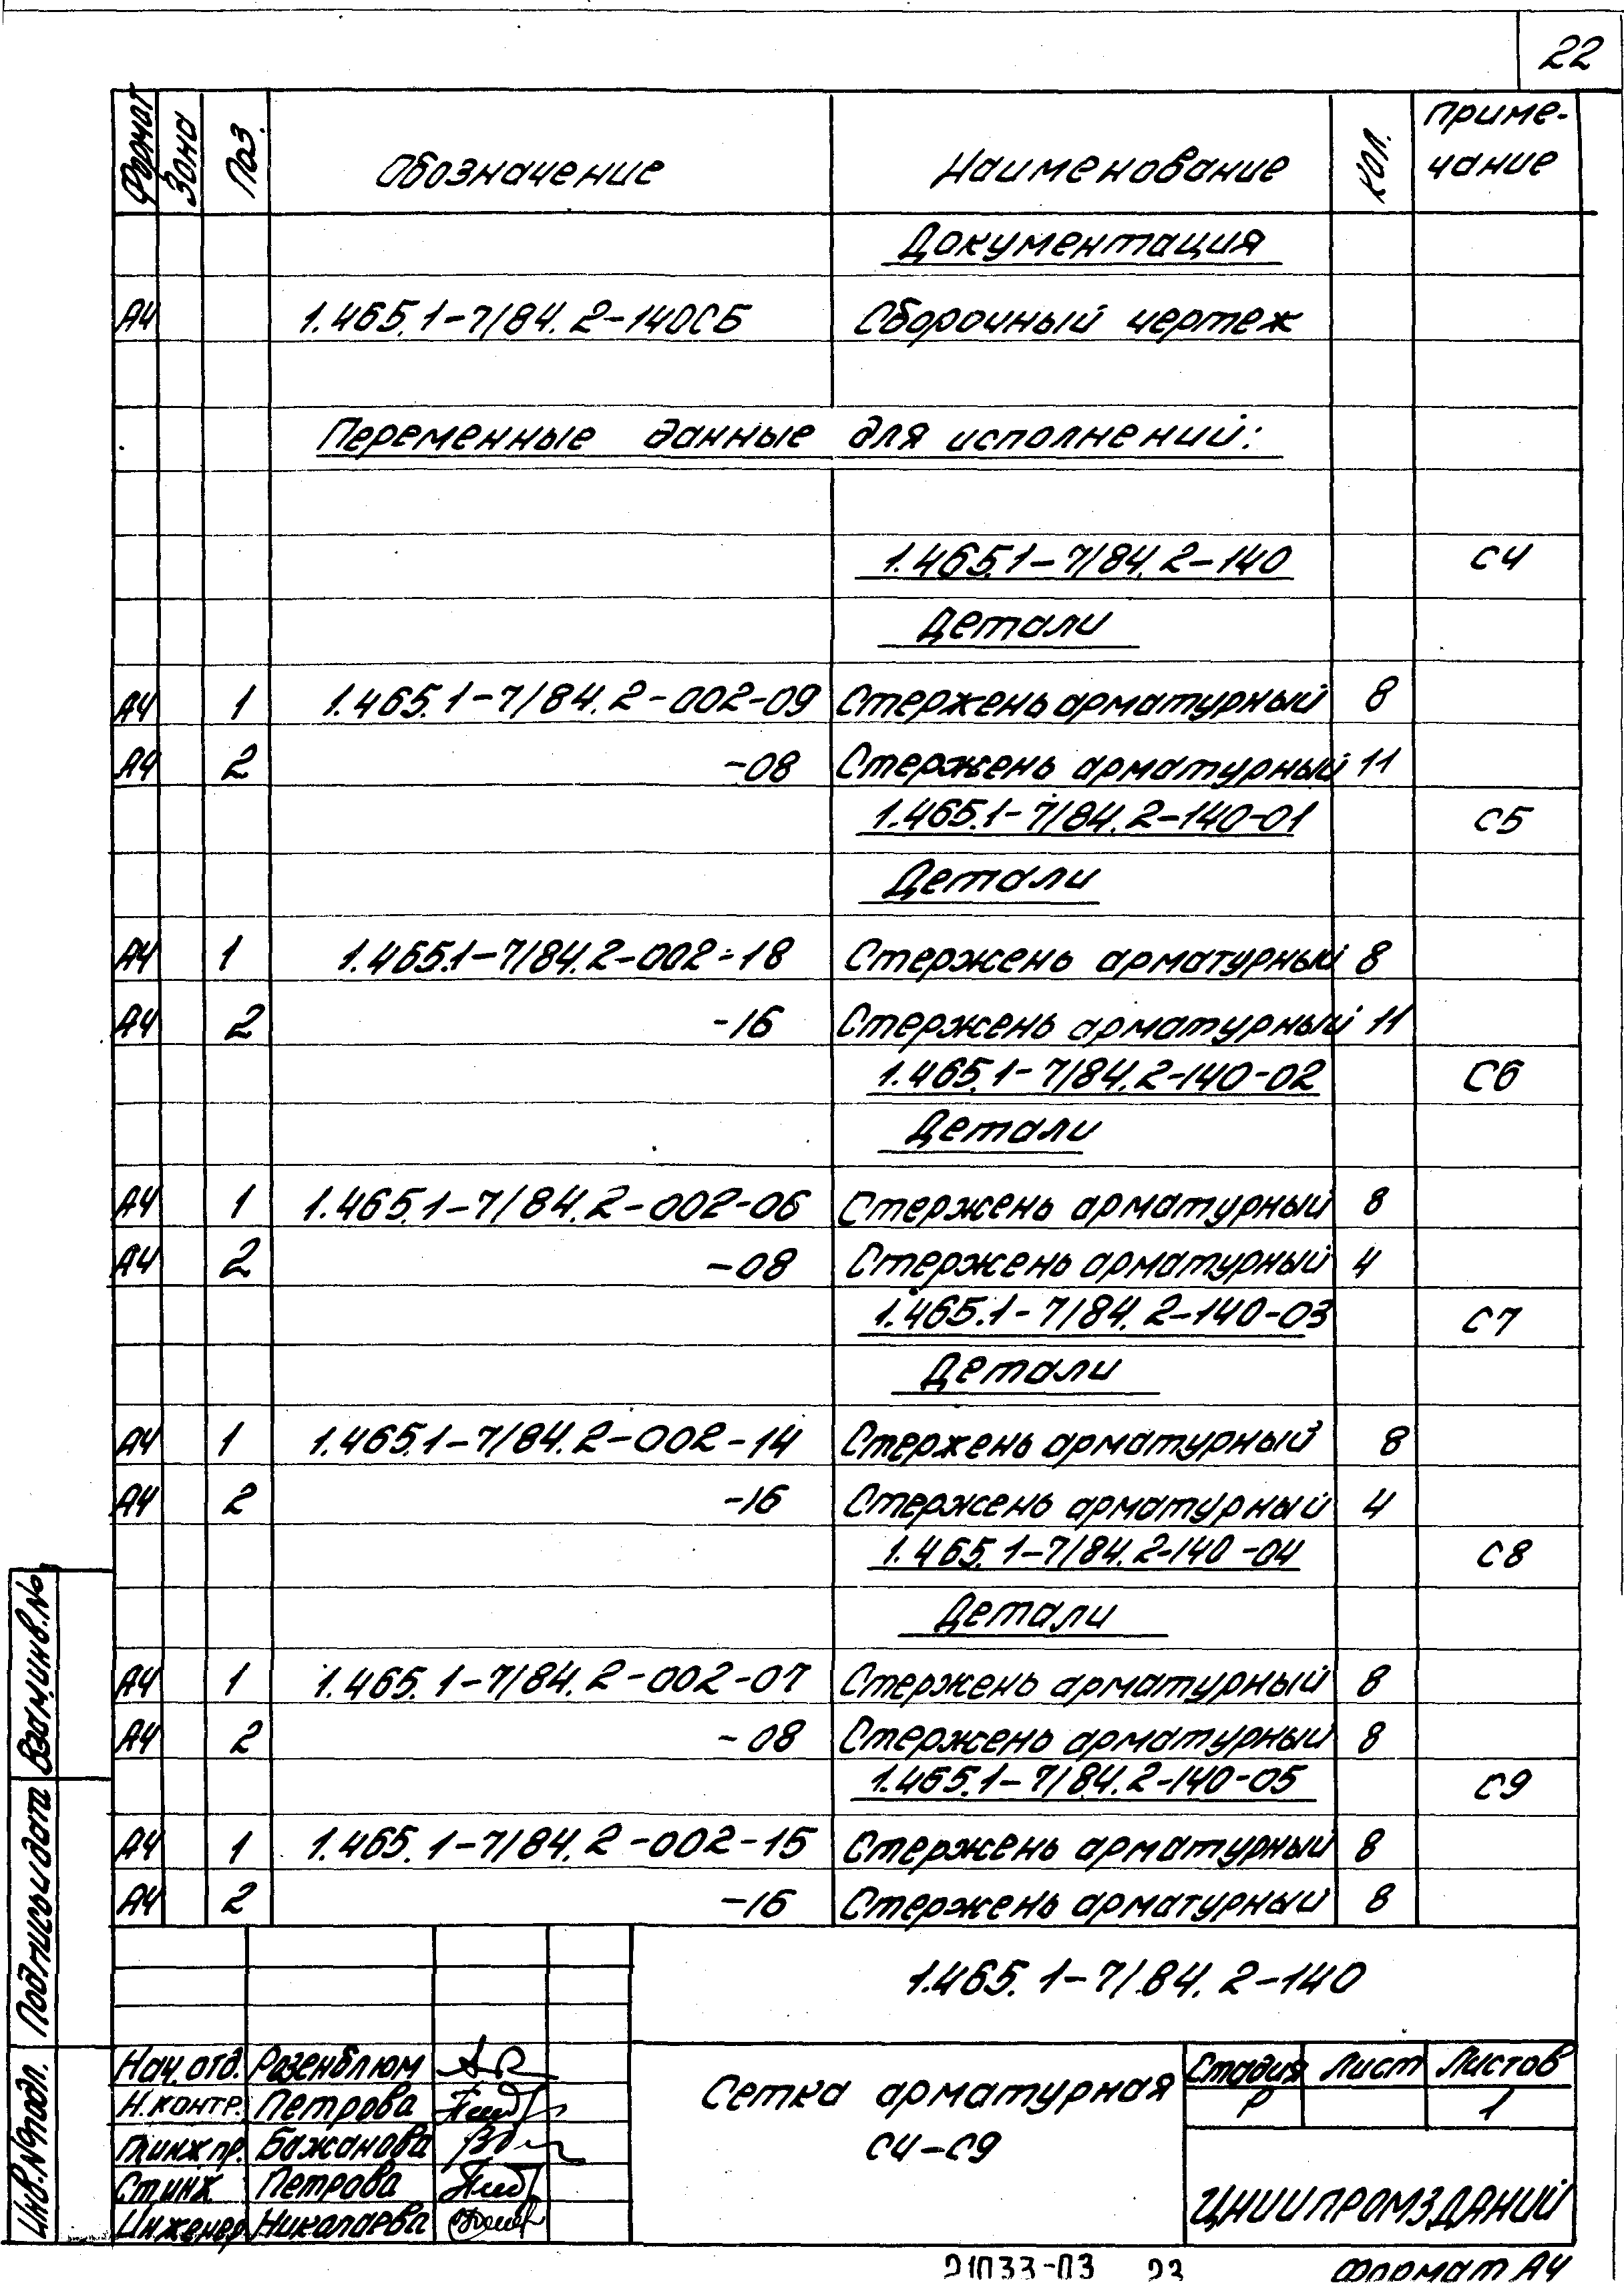 22
Формат Зона Поз. Обозначение Наименование Кол. Приме-
чание
Документация
А4 1.465.1-7/84.2-140СБ Сборочный чертеж
Переменные данные для исполнений:
1.465.1-7/84.2-140 С4
Детали
А4 1 1.465.1-7/84.2-002-09 Стержень арматурный 8
А4 2 -08 Стержень арматурный 11
1.465.1-7/84.2-140-01 С5
Детали
А4 1 1.465.1-7/84.2-002-18 Стержень арматурный 8
А4 2 -16 Стержень арматурный 11
1.465.1-7/84.2-140-02 С6
Детали
А4 1 1.465.1-7/84.2-002-06 Стержень арматурный 8
А4 2 -08 Стержень арматурный 4
1.465.1-7/84.2-140-03 С7
Детали
А4 1 1.465.1-7/84.2-002-14 Стержень арматурный 8
А4 2 -16 Стержень арматурный 4
1.465.1-7/84.2-140-04 С8
Детали
А4 1 1.465.1-7/84.2-002-07 Стержень арматурный 8
А4 2 -08 Стержень арматурный 8
1.465.1-7/84.2-140-05 С9
А4 1 1.465.1-7/84.2-002-15 Стержень арматурный 8
А4 2 -16 Стержень арматурный 8
Взам.инв.№
Подпись и дата
Инв.№подл.
1.465.1-7/84.2-140
Нач.отд. Розенблюм
Н.контр. Петрова
Гл.инж.пр. Бажанова
Ст.инж Петрова
Инженер Николаева
Сетка арматурная
С4-С9
Стадия Лист Листов
Р 1
ЦНИИПРОМЗДАНИЙ
21033-03 23 Формат А4